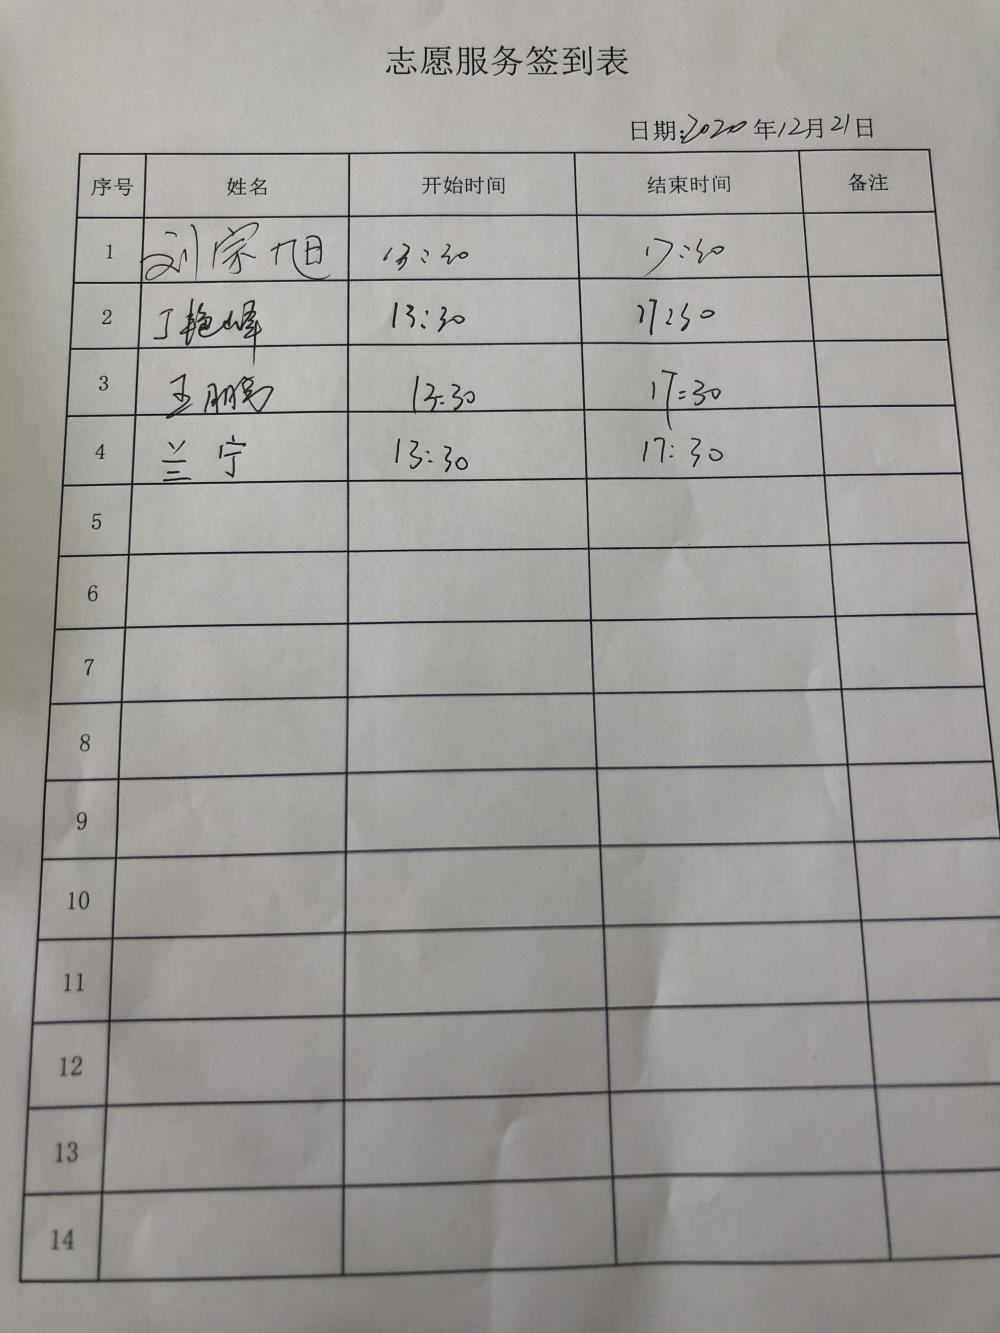 志愿服务签到表
日期:2020年12月21日
序号 姓名 开始时间 结束时间 备注
1 刘宗旭 13:30 17:30
2 丁艳峰 13:30 17:30
3 王鹏 13:30 17:30
4 兰宁 13:30 17:30
5
6
7
8
9
10
11
12
13
14